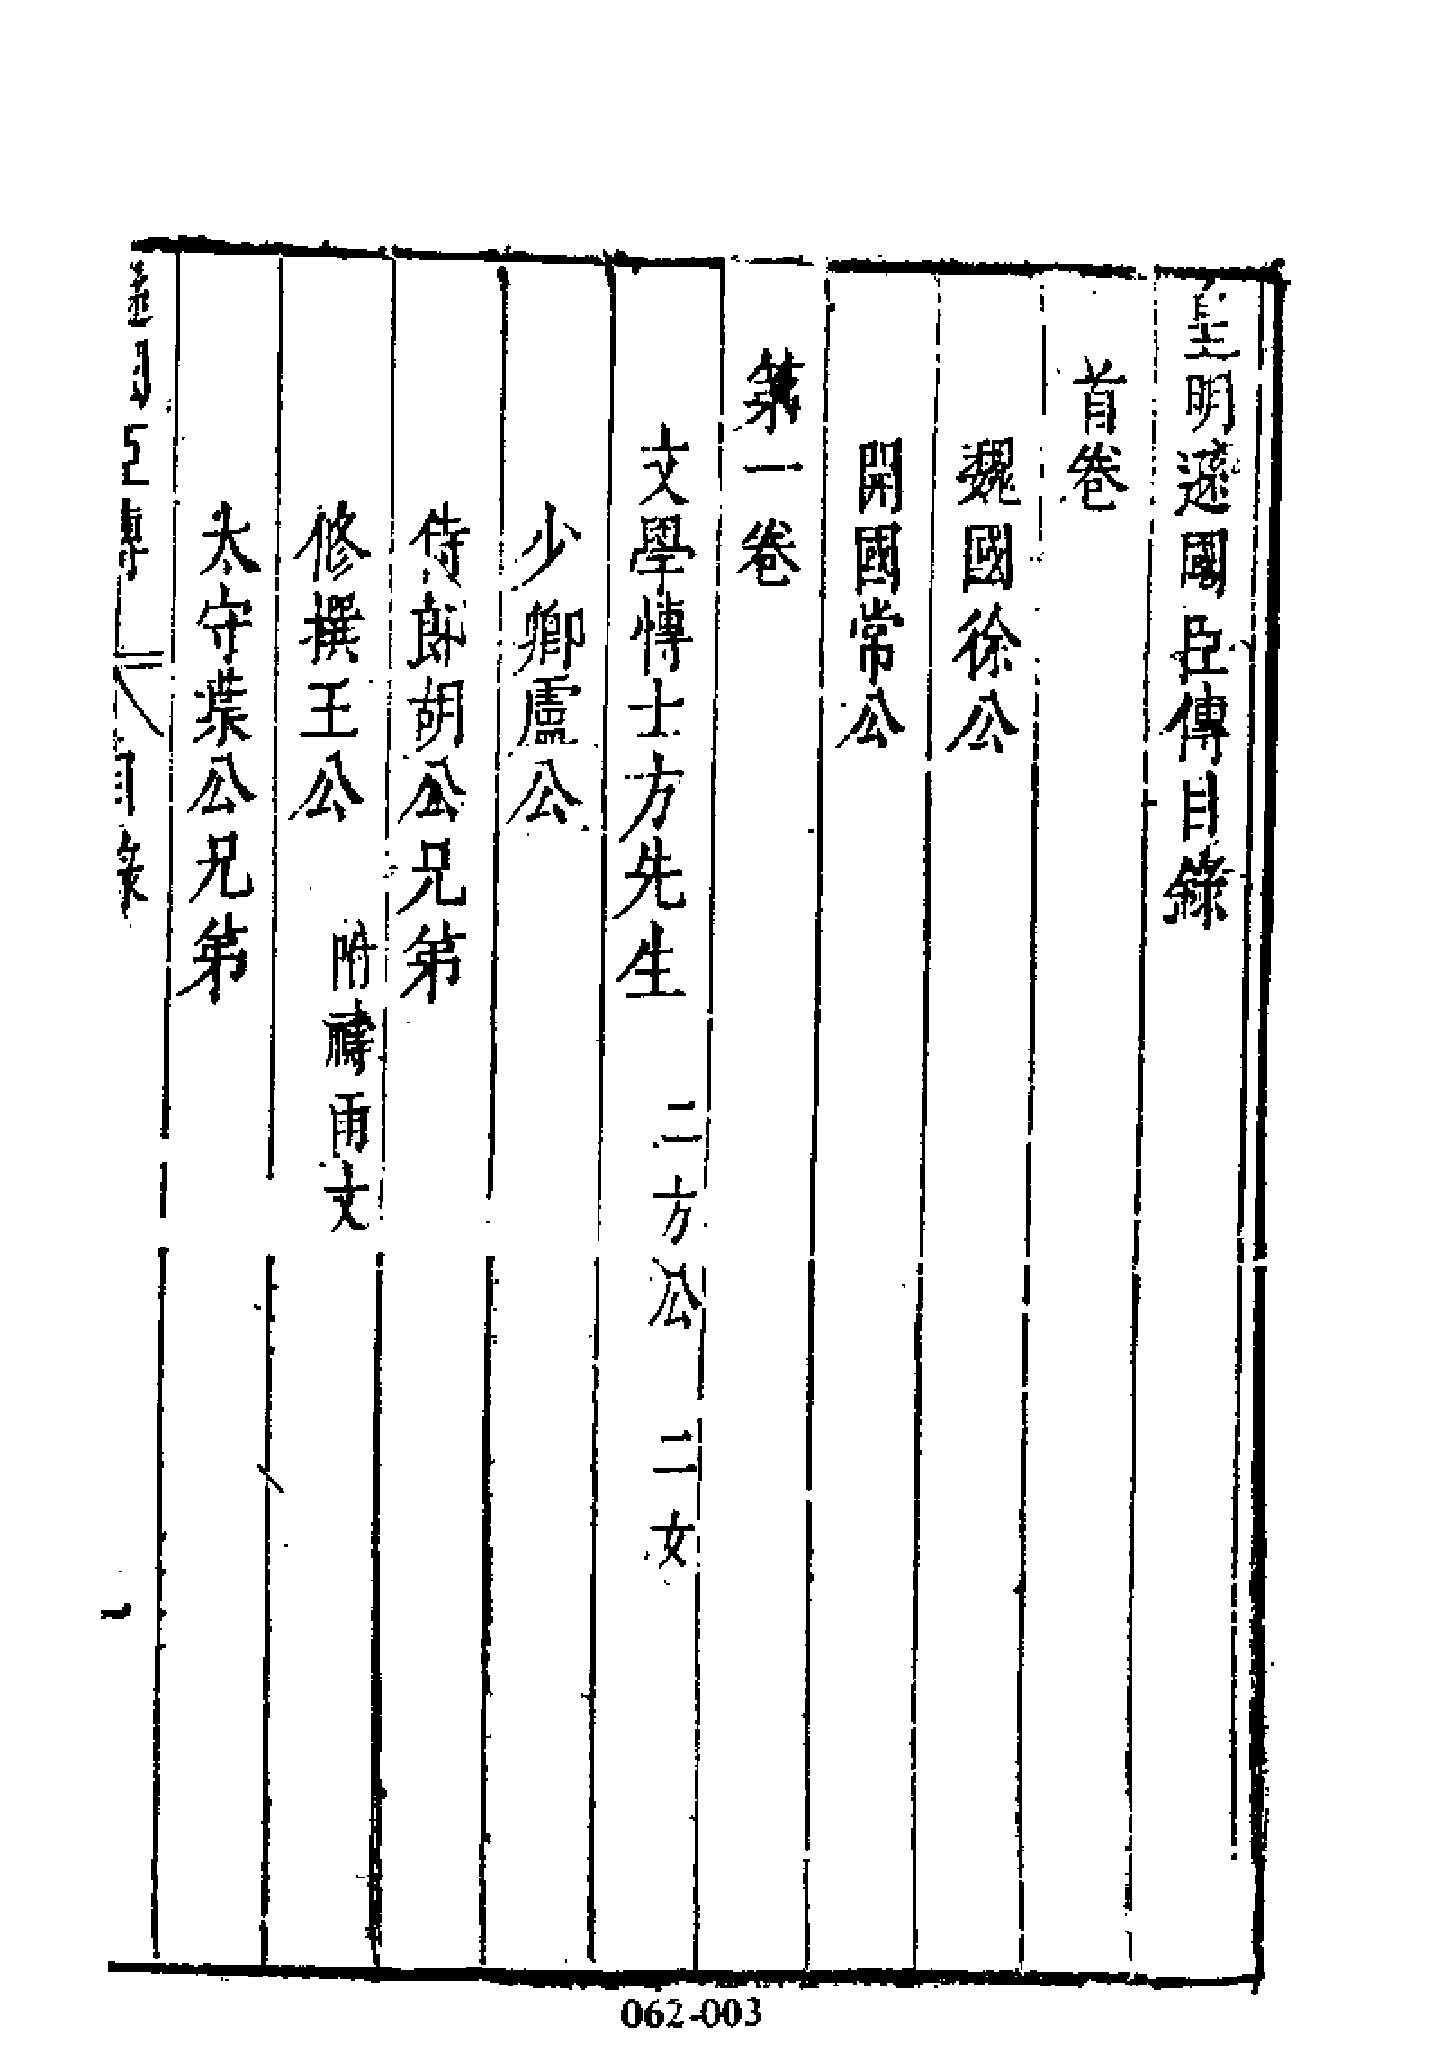 皇明遜國臣傳目錄
首卷
魏國徐公
開國常公
第一卷
文學博士方先生 二方公 二女
少卿盧公
侍郎胡公兄弟
修撰王公 附禱雨文
太守葉公兄弟
062-003